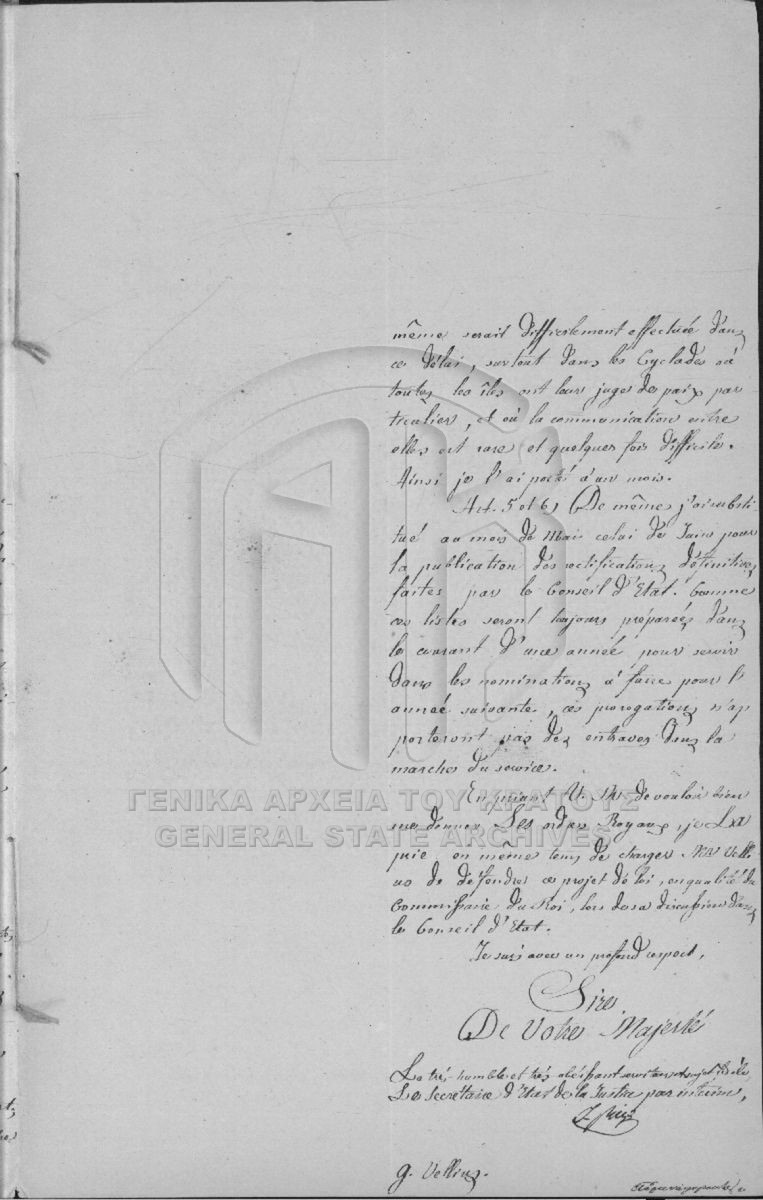 même serait difficilement effectuée dans
ce délai, surtout dans les Cyclades où
toutes les îles ont leur juge de paix par
ticulier, et où la communication entre
elles est rare et quelques fois difficile.
Ainsi je l'ai porté à un mois.
Art. 5 et 6) De même j'ai substi-
tué au mois de Mai celui de Juin pour
la publication des rectifications définitives
faites par le Conseil d'Etat. Comme
ces listes seront toujours préparées dans
le courant d'une année pour servir
dans les nominations à faire pour l'
année suivante, ces prorogations n'ap
porteront pas des entraves dans la
marche du service.
ΓΕΝΙΚΑ ΑΡΧΕΙΑ ΤΟΥ ΚΡΑΤΟΥΣ
GENERAL STATE ARCHIVES
En priant V. M. de vouloir bien
me donner Ses ordres Royaux, je La
prie en même tems de charger Mr Velli
us de défendre ce projet de loi, en qualité du
Commissaire du Roi, lors de sa discussion dans
le Conseil d'Etat.
Je suis avec un profond respect,
Sire
De Votre Majesté
Le très-humble et très obéissant serviteur et sujet fidèle,
Le secrétaire d'Etat de la Justice par interim,
g. Vellius.